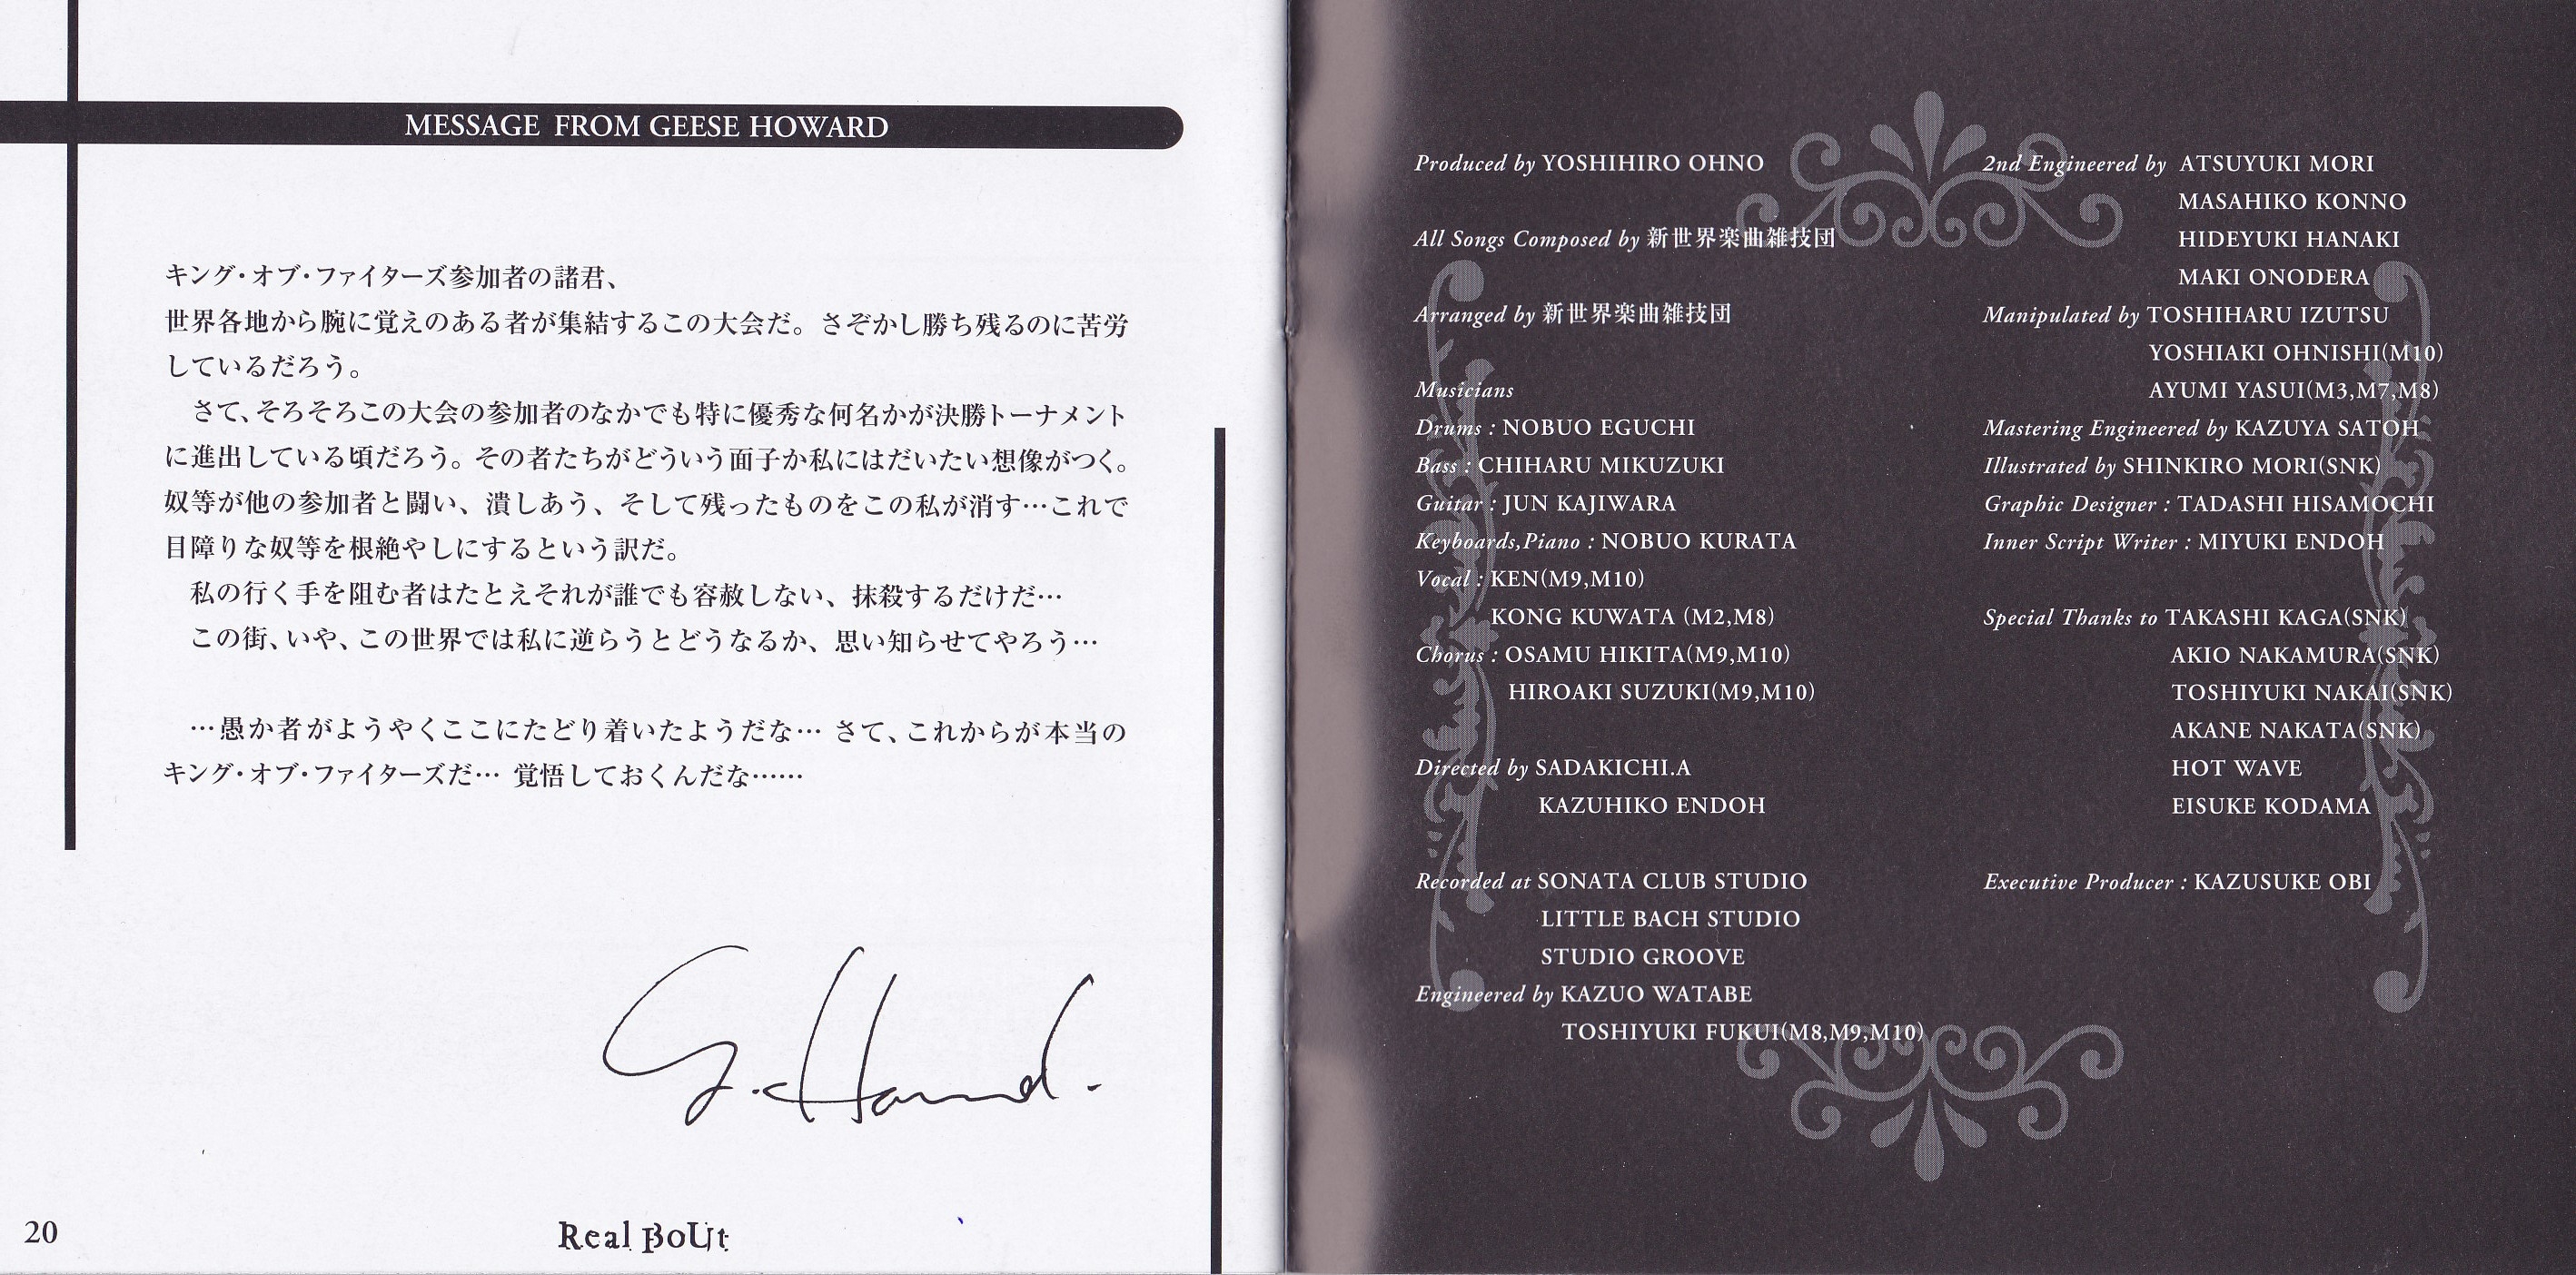 MESSAGE FROM GEESE HOWARD
キング・オブ・ファイターズ参加者の諸君、
世界各地から腕に覚えのある者が集結するこの大会だ。さぞかし勝ち残るのに苦労
しているだろう。
さて、そろそろこの大会の参加者のなかでも特に優秀な何名かが決勝トーナメント
に進出している頃だろう。その者たちがどういう面子か私にはだいたい想像がつく。
奴等が他の参加者と闘い、潰しあう、そして残ったものをこの私が消す…これで
目障りな奴等を根絶やしにするという訳だ。
私の行く手を阻む者はたとえそれが誰でも容赦しない、抹殺するだけだ…
この街、いや、この世界では私に逆らうとどうなるか、思い知らせてやろう…
…愚か者がようやくここにたどり着いたようだな… さて、これからが本当の
キング・オブ・ファイターズだ… 覚悟しておくんだな……
G. Howard.
20
Real Bout
Produced by YOSHIHIRO OHNO
All Songs Composed by 新世界楽曲雑技団
Arranged by 新世界楽曲雑技団
Musicians
Drums : NOBUO EGUCHI
Bass : CHIHARU MIKUZUKI
Guitar : JUN KAJIWARA
Keyboards,Piano : NOBUO KURATA
Vocal : KEN(M9,M10)
KONG KUWATA (M2,M8)
Chorus : OSAMU HIKITA(M9,M10)
HIROAKI SUZUKI(M9,M10)
Directed by SADAKICHI.A
KAZUHIKO ENDOH
Recorded at SONATA CLUB STUDIO
LITTLE BACH STUDIO
STUDIO GROOVE
Engineered by KAZUO WATABE
TOSHIYUKI FUKUI(M8,M9,M10)
2nd Engineered by ATSUYUKI MORI
MASAHIKO KONNO
HIDEYUKI HANAKI
MAKI ONODERA
Manipulated by TOSHIHARU IZUTSU
YOSHIAKI OHNISHI(M10)
AYUMI YASUI(M3,M7,M8)
Mastering Engineered by KAZUYA SATOH
Illustrated by SHINKIRO MORI(SNK)
Graphic Designer : TADASHI HISAMOCHI
Inner Script Writer : MIYUKI ENDOH
Special Thanks to TAKASHI KAGA(SNK)
AKIO NAKAMURA(SNK)
TOSHIYUKI NAKAI(SNK)
AKANE NAKATA(SNK)
HOT WAVE
EISUKE KODAMA
Executive Producer : KAZUSUKE OBI